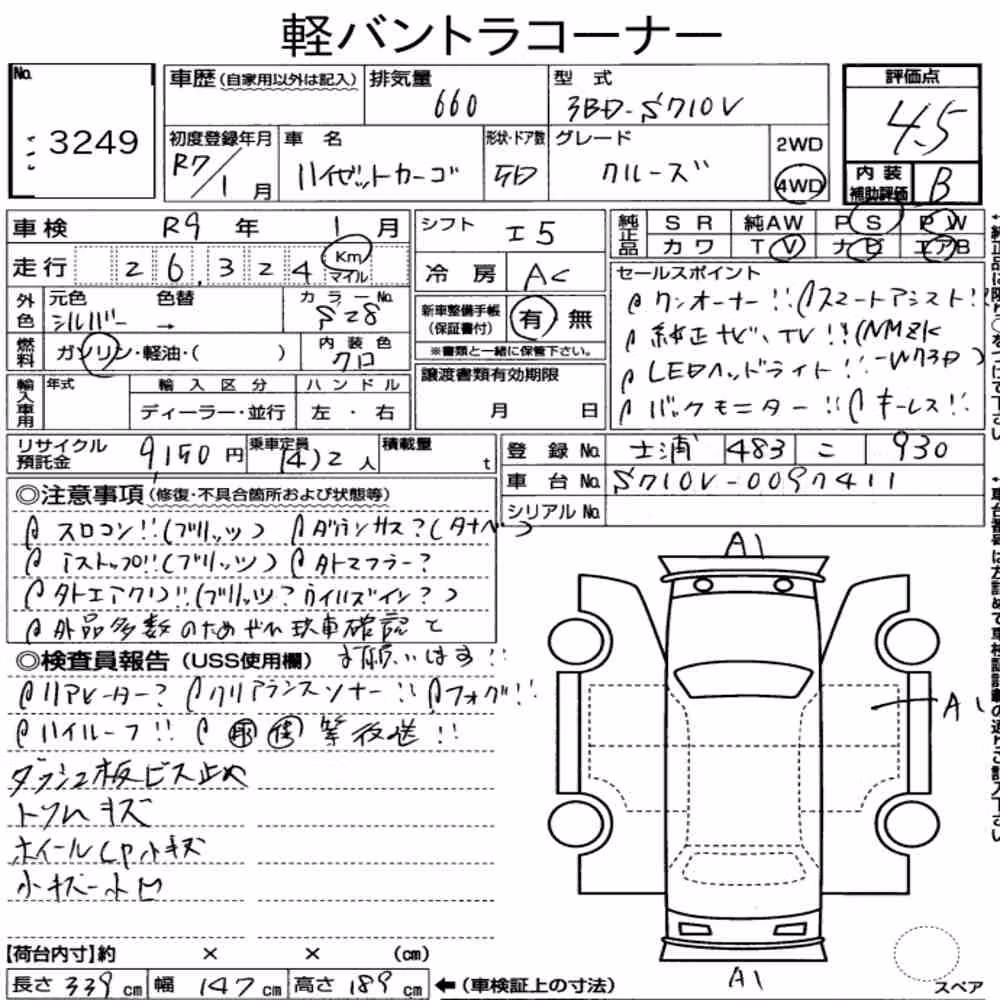 軽バントラコーナー
No. 3249
車歴 (自家用以外は記入)
排気量 660
型式 3BD-S710V
評価点 4.5
初度登録年月 R7/1月
車名 ハイゼットカーゴ
形状・ドア数 5D
グレード クルーズ
2WD
4WD
内装補助評価 B
車検 R9年 1月
走行 26,324 Km マイル
外色 元色 シルバー 色替 →
カラーNo. S28
燃料 ガソリン・軽油・( )
内装色 クロ
輸入車用 年式 輸入区分 ハンドル
ディーラー・並行 左・右
シフト エ5
冷房 AC
新車整備手帳(保証書付) 有 無
※書類と一緒に保管下さい。
譲渡書類有効期限
月 日
純正品 SR 純AW PS PW
カワ TV ナビ エアB
セールスポイント
ワンオーナー!! スマートアシスト!!
純正ナビ、TV!! (NMZK
LEDヘッドライト!! -W73D)
バックモニター!! キーレス!!
リサイクル預託金 9150円
乗車定員 (4)2人
積載量 t
登録No. 土浦 483 こ 930
車台No. S710V-0097411
シリアルNo.
◎注意事項 (修復・不具合箇所および状態等)
スロコン!! (ブリッツ) ダウンサス? (タナベ)
アストップ!! (ブリッツ) 外マフラー?
外エアクリ!! (ブリッツ?
外品多数のため
現車確認
お願いします!!
◎検査員報告 (USS使用欄)
リアヒーター? クリアランスソナー!! フォグ!!
ハイルーフ!! 取 保 等後送!!
ダッシュ板ビス止め
トリムキズ
ホイールCP小キズ
小キズ小凹
A1
A1
A1
【荷台内寸】約 × × (cm)
長さ 339 cm 幅 147 cm 高さ 189 cm ←(車検証上の寸法)
スペア